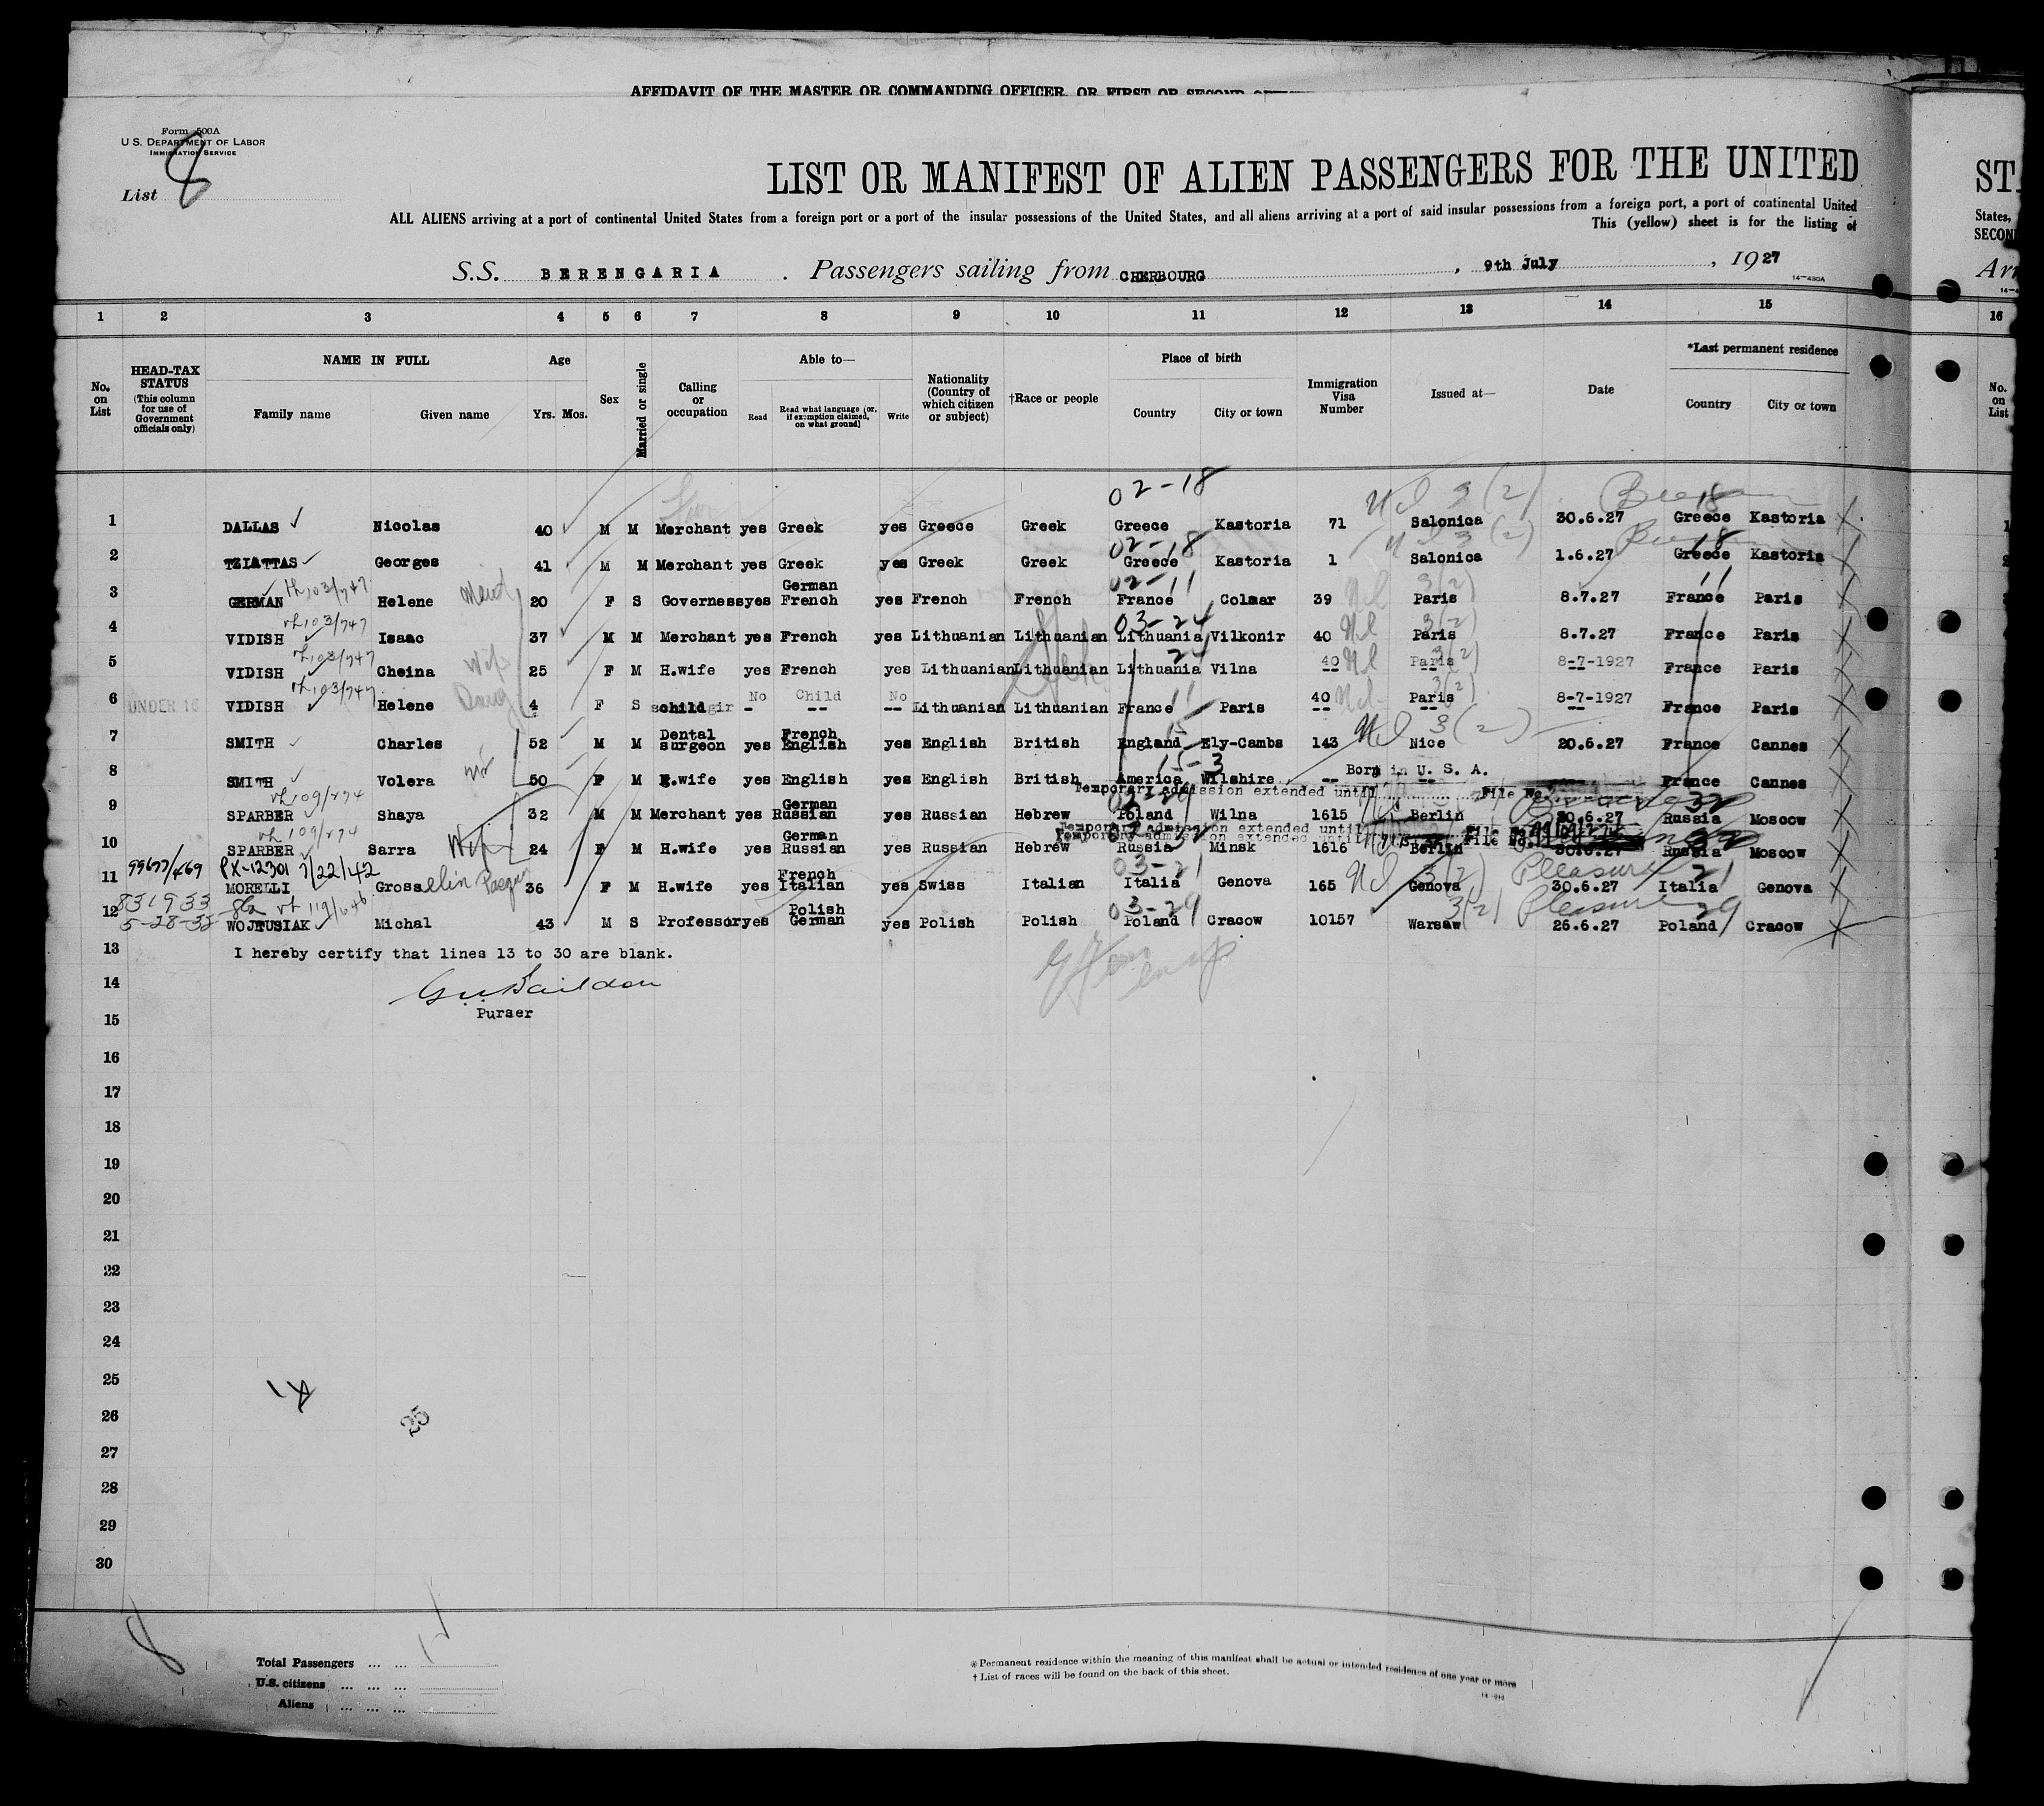 AFFIDAVIT OF THE MASTER OR COMMANDING OFFICER, OR FIRST OR SECOND
Form 500A
U. S. DEPARTMENT OF LABOR
IMMIGRATION SERVICE
List 8
LIST OR MANIFEST OF ALIEN PASSENGERS FOR THE UNITED
ALL ALIENS arriving at a port of continental United States from a foreign port or a port of the insular possessions of the United States, and all aliens arriving at a port of said insular possessions from a foreign port, a port of continental United
This (yellow) sheet is for the listing of
S.S. BERENGARIA . Passengers sailing from CHERBOURG , 9th July , 1927
14—480A
1 2 3 4 5 6 7 8 9 10 11 12 13 14 15 16
No. on List HEAD-TAX STATUS (This column for use of Government officials only) NAME IN FULL Family name Given name Age Yrs. Mos. Sex Married or single Calling or occupation Able to— Read Read what language [or, if exemption claimed, on what ground] Write Nationality (Country of which citizen or subject) †Race or people Place of birth Country City or town Immigration Visa Number Issued at— Date *Last permanent residence Country City or town No. on List
02-18
1 DALLAS Nicolas 40 M M Merchant yes Greek yes Greece Greek Greece Kastoria 71 Salonica 30.6.27 Greece Kastoria
02-18
2 TZIATTAS Georges 41 M M Merchant yes Greek yes Greek Greek Greece Kastoria 1 Salonica 1.6.27 Greece Kastoria
103/747 Maid 02-11
3 GERMAN Helene 20 F S Governess yes German French yes French French France Colmar 39 Paris 8.7.27 France Paris
103/747 03-24
4 VIDISH Isaac 37 M M Merchant yes French yes Lithuanian Lithuanian Lithuania Vilkonir 40 Paris 8.7.27 France Paris
103/747 Wife 24
5 VIDISH Cheina 25 F M H.wife yes French yes Lithuanian Lithuanian Lithuania Vilna 40 Paris 8-7-1927 France Paris
103/747 Daug 11
6 UNDER 16 VIDISH Helene 4 F S child No Child No Lithuanian Lithuanian France Paris 40 Paris 8-7-1927 France Paris
7 SMITH Charles 52 M M Dental surgeon yes French English yes English British England Ely-Cambs 143 Nice 20.6.27 France Cannes
15-3
8 SMITH Volera 50 F M H.wife yes English yes English British America Wilshire -- Born in U. S. A. France Cannes
Temporary admission extended until File No.
109/274
9 SPARBER Shaya 32 M M Merchant yes German Russian yes Russian Hebrew Poland Wilna 1615 Berlin 30.6.27 Russia Moscow
Temporary admission extended until File No.
Temporary admission extended until File No.
109/274 Wife
10 SPARBER Sarra 24 F M H.wife yes German Russian yes Russian Hebrew Russia Minsk 1616 Berlin 30.6.27 Russia Moscow
99677/469 PX-12301 7/22/42 03-21 3(2) Pleasure 21
11 MORELLI Gross 36 F M H.wife yes French Italian yes Swiss Italian Italia Genova 165 Genova 30.6.27 Italia Genova
831933 119/646 03-29 3(2) Pleasure 29
12 5-28-32 WOJTUSIAK Michal 43 M S Professor yes Polish German yes Polish Polish Poland Cracow 10157 Warsaw 26.6.27 Poland Cracow
13 I hereby certify that lines 13 to 30 are blank.
14
Purser
15
16
17
18
19
20
21
22
23
24
25
26
27
28
29
30
8
Total Passengers ... ...
U.S. citizens ... ... ...
Aliens ... ... ...
* Permanent residence within the meaning of this manifest shall be actual or intended residence of one year or more
† List of races will be found on the back of this sheet.